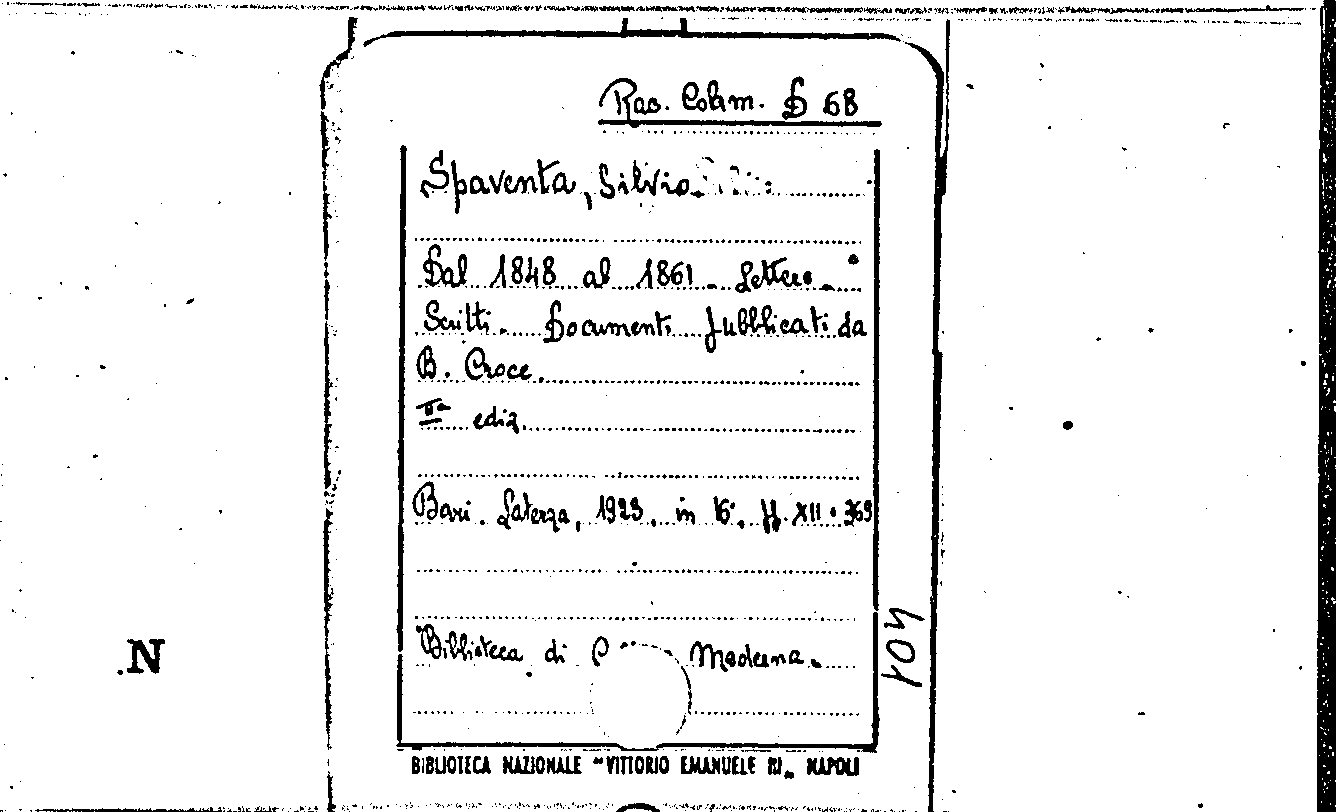 Rac. Colam. D 68
Spaventa, Silvio.
Dal 1848 al 1861 - Lettere -
Scritti - Documenti pubblicati da
B. Croce.
IIª ediz.
Bari. Laterza, 1923, in 16°, pp. XII + 369
Biblioteca di Moderna.
BIBLIOTECA NAZIONALE "VITTORIO EMANUELE III„ NAPOLI
401
.N